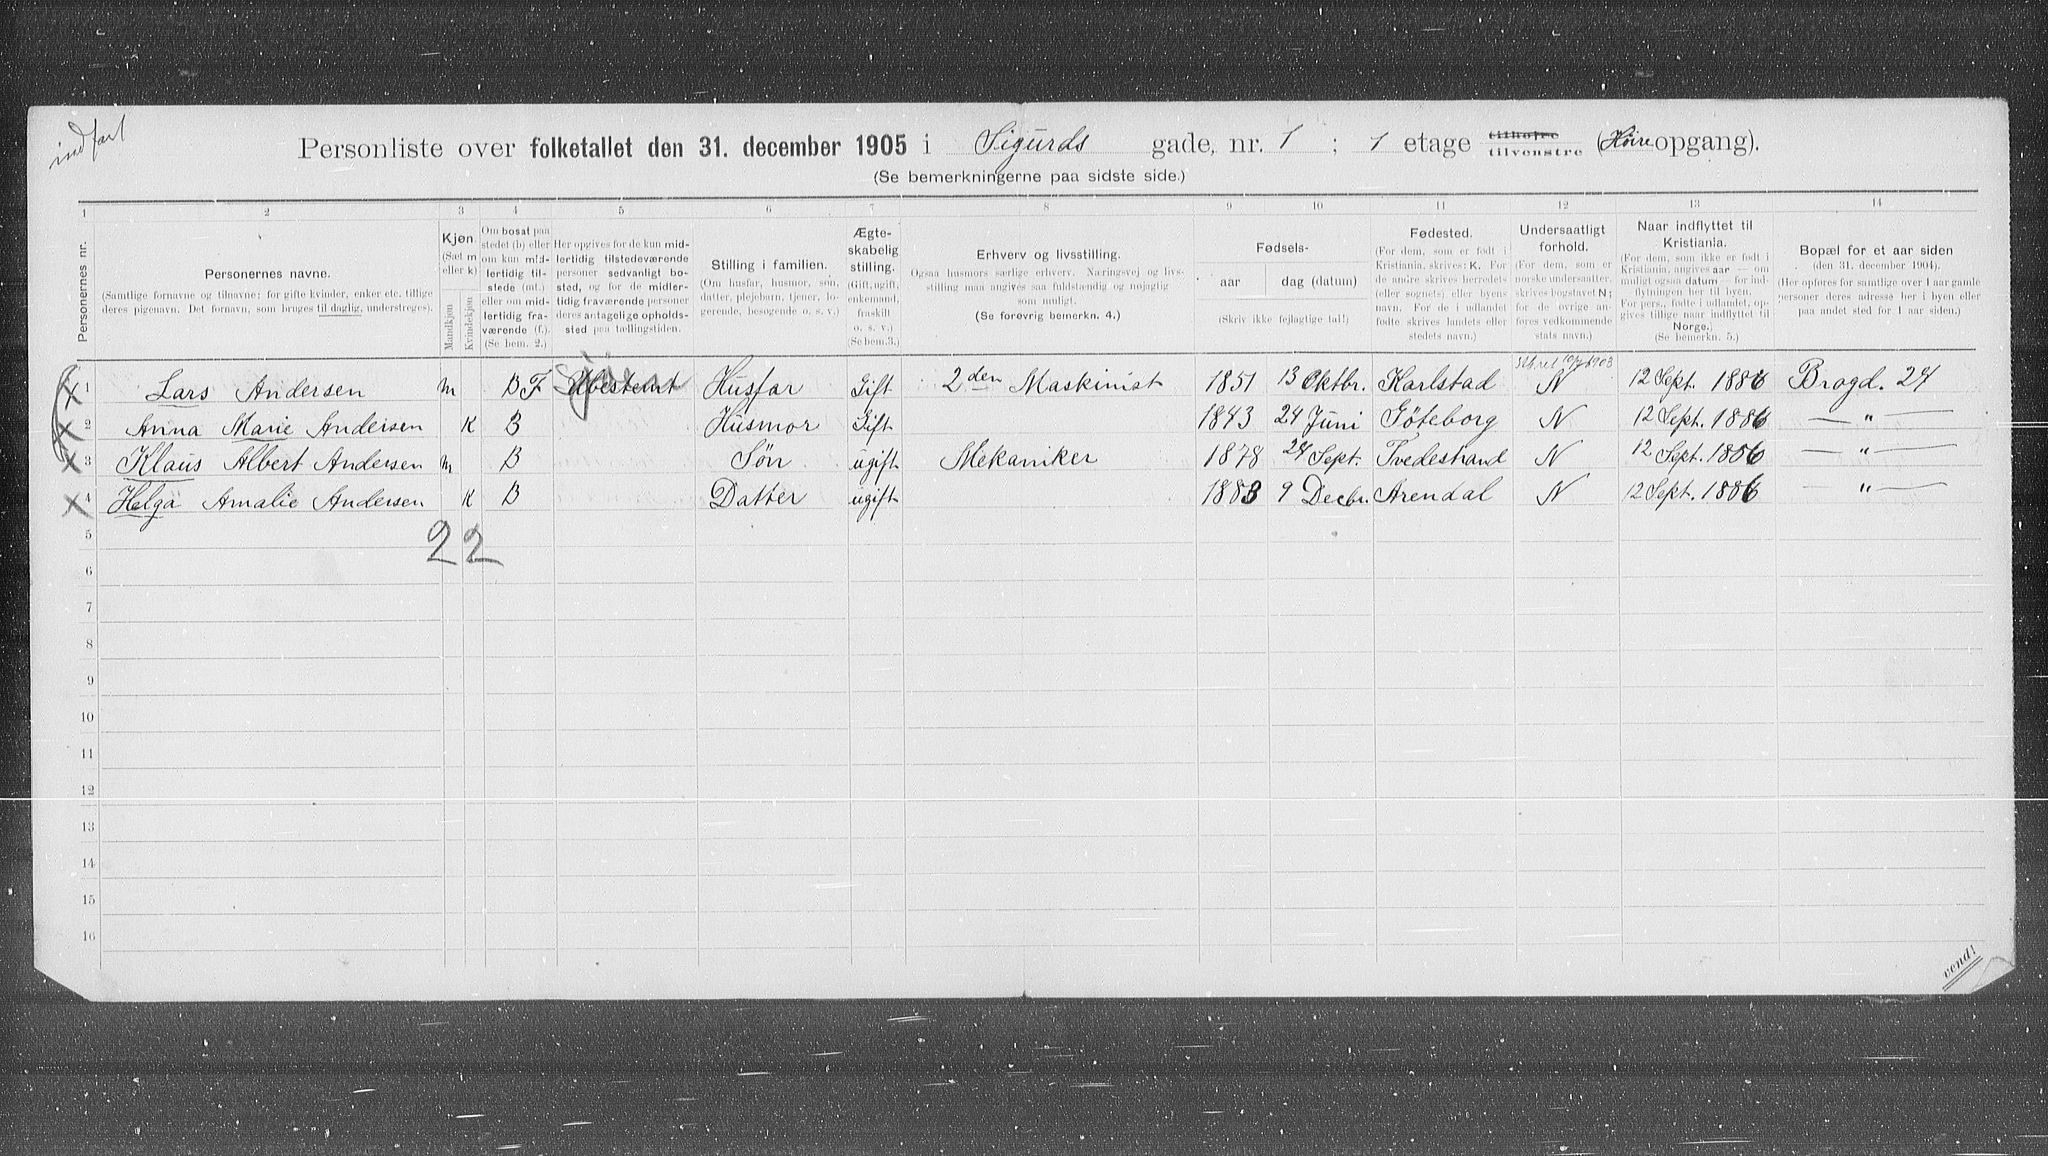 indført
Personliste over folketallet den 31. december 1905 i Sigurds gade, nr. 1 ; 1 etage tilhøire tilvenstre (Høire opgang).
(Se bemerkningerne paa sidste side.)
1 2 3 4 5 6 7 8 9 10 11 12 13 14
Personernes nr.
Personernes navne.
(Samtlige fornavne og tilnavne; for gifte kvinder, enker etc. tillige deres pigenavn. Det fornavn, som bruges til daglig, understreges).
Kjøn. (Sæt m eller k) Mandkjøn Kvindekjøn
Om bosat paa stedet (b) eller om kun midlertidig tilstede (mt.) eller om midlertidig fraværende (f.). (Se bem. 2.)
Her opgives for de kun midlertidig tilstedeværende personer sedvanligt bosted, og for de midlertidig fraværende personer deres antagelige opholdssted paa tællingstiden.
Stilling i familien. (Om husfar, husmor, søn, datter, plejebarn, tjener, logerende, besøgende o. s. v.)
Ægteskabelig stilling. (Gift, ugift, enkemand, fraskilt o. s. v.) (Se bem.3.)
Erhverv og livsstilling. Ogsaa husmors særlige erhverv. Næringsvej og livsstilling maa angives saa fuldstændig og nøjagtig som muligt. (Se forøvrig bemerkn. 4.)
Fødsels- aar dag (datum) (Skriv ikke fejlagtige tal!)
Fødested. (For dem, som er født i Kristiania, skrives: K. For de andre skrives herredets (eller sognets) eller byens navn. For de i udlandet fødte skrives landets eller stedets navn.)
Undersaatligt forhold. (For dem, som er norske undersaatter, skrives bogstavet N; for de øvrige anføres vedkommende stats navn.)
Naar indflyttet til Kristiania. (For dem, som ikke er født i Kristiania, angives aar — om muligt ogsaa datum — for indflytningen her til byen. For pers., fødte i udlandet, opgives tillige naar indflyttet til Norge.) (Se bemerkn. 5.)
Bopæl for et aar siden (den 31. december 1904). (Her opføres for samtlige over 1 aar gamle personer deres adresse her i byen eller paa andet sted for 1 aar siden.)
1 Lars Andersen m B F Ubestemt Husfar Gift 2den Maskinist 1851 13 Oktbr. Karlstad N 12 Sept. 1886 Brogd. 27
2 Anna Marie Andersen K B Husmor Gift 1843 24 Juni Göteborg N 12 Sept. 1886 — " —
3 Klaus Albert Andersen m B Søn ugift Mekaniker 1878 24 Sept. Tvedestrand N 12 Sept. 1886 — " —
4 Helga Amalie Andersen K B Datter ugift 1883 9 Decbr. Arendal N 12 Sept. 1886 — " —
5 22
6
7
8
9
10
11
12
13
14
15
16
vend!